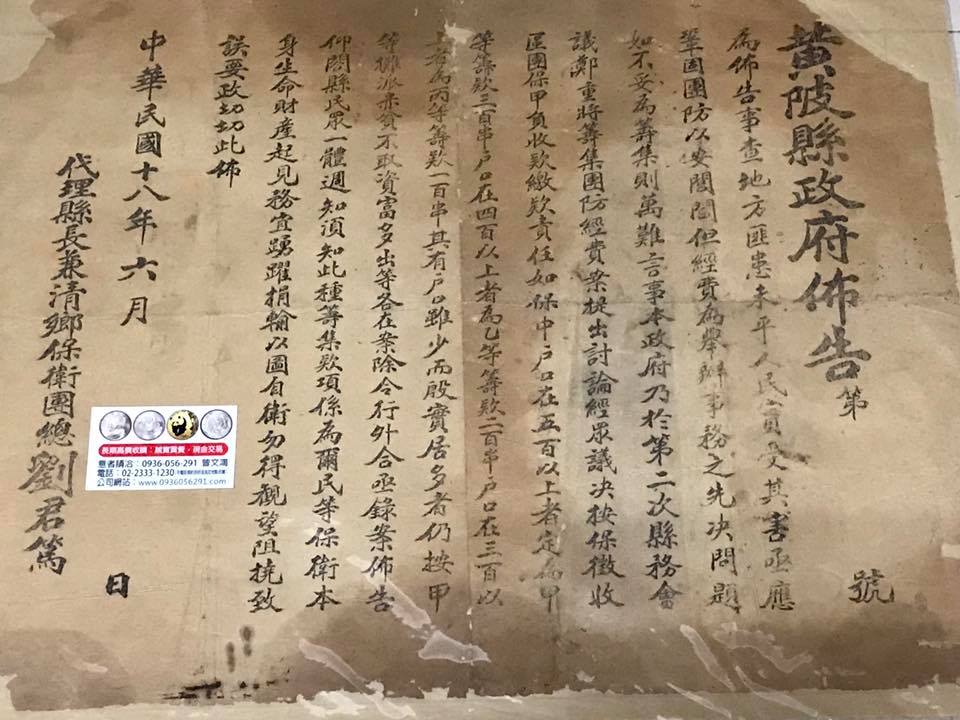 黄陂縣政府佈告 第 號
為佈告事查地方匪患未平人民實受其害亟應
鞏固團防以安閭閻但經費為舉辦事務之先决問題
如不妥為籌集則萬難言事本政府乃於第二次縣務會
議鄭重將籌集團防經費案提出討論經眾議决按保徵收
區團保甲負收欵繳欵責任如保中戶口在五百以上者定為甲
等籌欵三百串戶口在四百以上者為乙等籌欵二百串戶口在三百以
上者為丙等籌欵一百串其有戶口雖少而殷實居多者仍按甲
等攤派赤貧不取資富多出等各在案除令行外合亟錄案佈告
仰闔縣民眾一體週知須知此種籌集欵項係為爾民等保衛本
身生命財產起見務宜踴躍捐輸以圖自衛勿得觀望阻撓致
誤要政切切此佈
中華民國十八年六月 日
代理縣長兼清鄉保衛團總劉君篤
長期高價收購：誠實買賣‧現金交易
意者請洽：0936-056-291 曾文鴻
電話：02-2333-1230
公司網站：www.0936056291.com